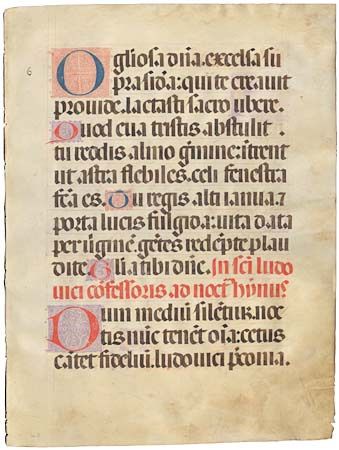 6
O gliosa dña. excelsa su
pra sidā: qui te creauit
prouide. lactasti sacro ubere.
Quod eua tristis abstulit
tu reddis almo gmine: ītrent
ut astra flebiles. celi fenestra
fc̄a es. Tu regis alti ianua: ⁊
porta lucis fulgida: uita data
per uginē. gētes redēpte plau
dite. Glīa tibi dñe. In sc̄i ludo
uici cōfessoris. ad noct̄ hỹnus.
Dum mediū silētiū. noc
tis nūc tenēt oīa: cetus
cātet fideliū. ludouici p̄conia.